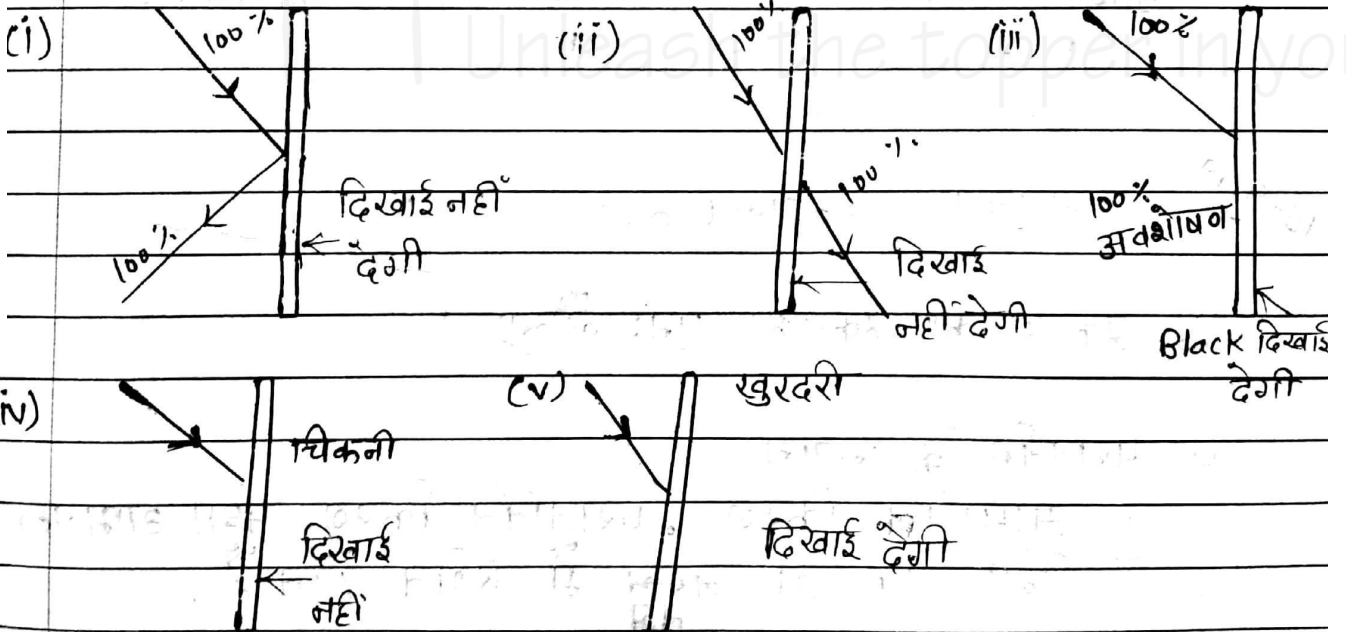 Unleash the topper in you
(i) 100% (ii) 100% (iii) 100%
दिखाई नहीं
देगी
100%
100%
दिखाई
नहीं देगी
100%
अवशोषण
Black दिखाई
देगी
iv)
चिकनी
दिखाई
नहीं
(v) खुरदरी
दिखाई देगी